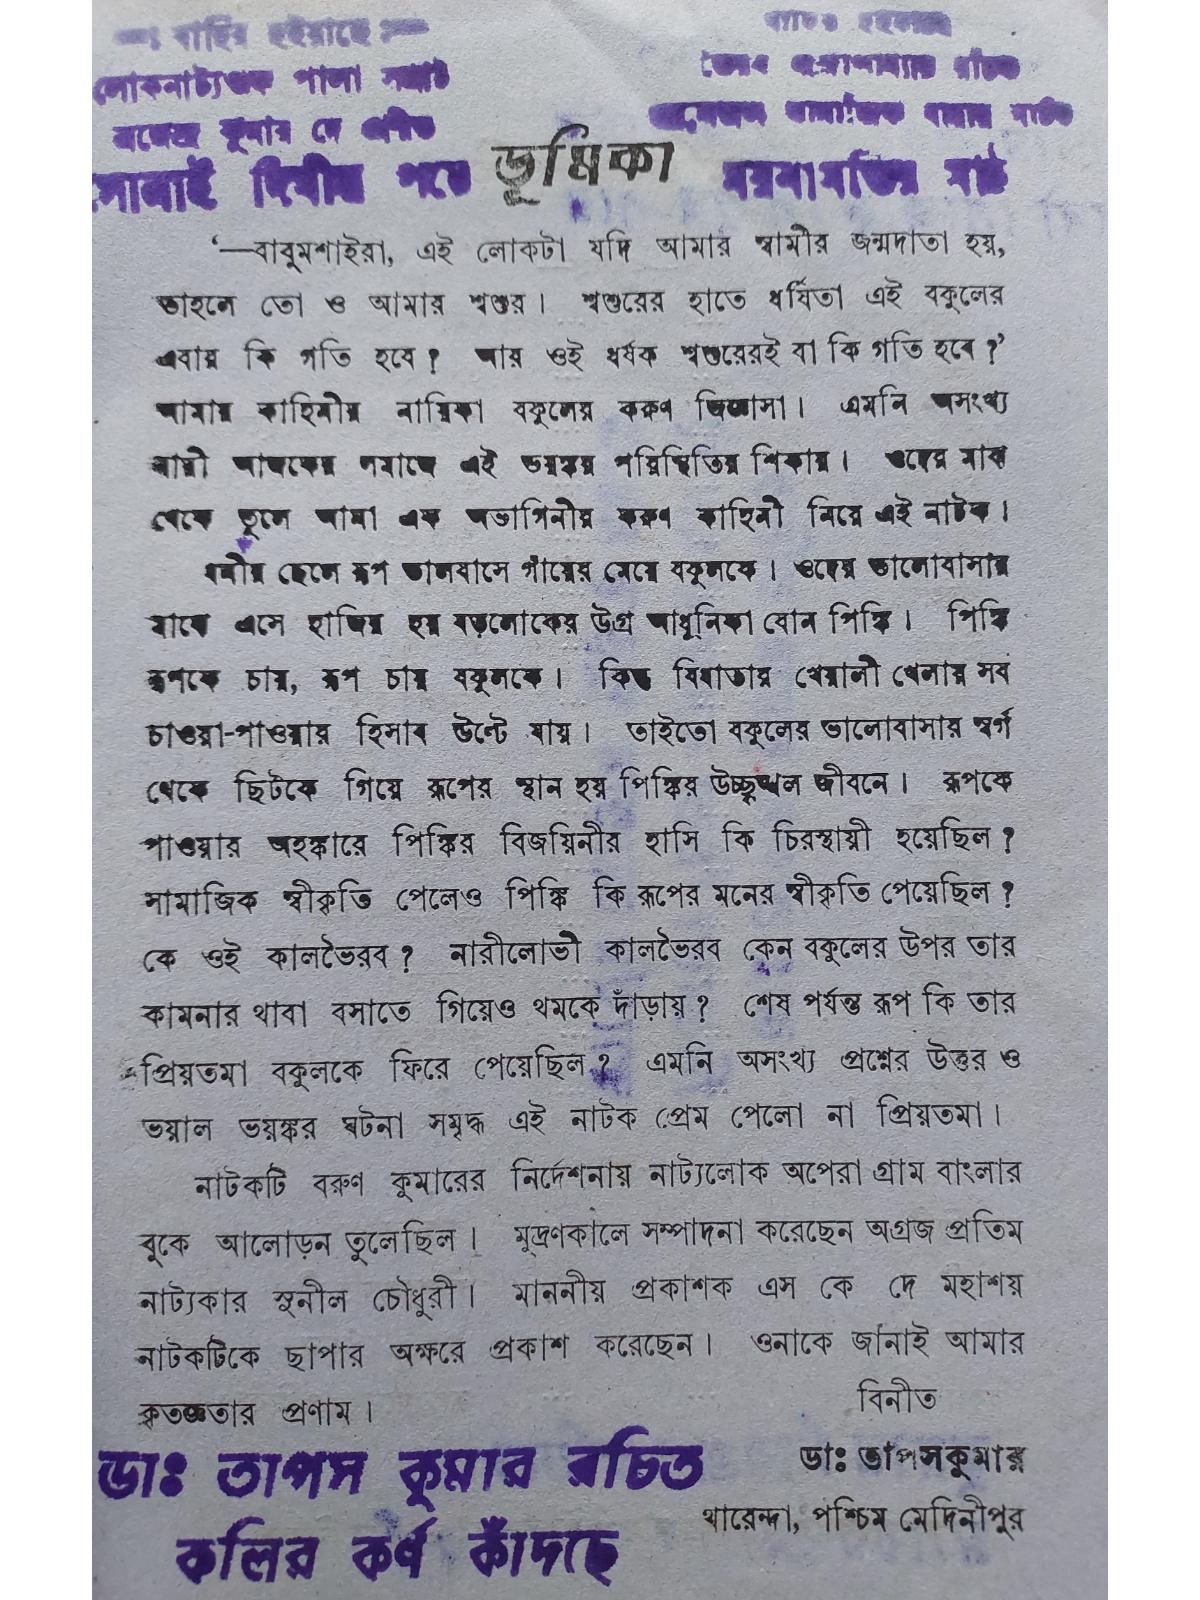 বাহির হইয়াছে
লোকনাট্যগুরু পালা সম্রাট
ব্রজেন্দ্র কুমার দে প্রণীত
সোনাই দিঘীর
ভূমিকা
‘—বাবুমশাইরা, এই লোকটা যদি আমার স্বামীর জন্মদাতা হয়,
তাহলে তো ও আমার শ্বশুর। শ্বশুরের হাতে ধর্ষিতা এই বকুলের
এবার কি গতি হবে? আর ওই ধর্ষক শ্বশুরেরই বা কি গতি হবে?’
আমার কাহিনীর নায়িকা বকুলের করুণ জিজ্ঞাসা। এমনি অসংখ্য
নারী আজকের সমাজে এই ভয়ঙ্কর পরিস্থিতির শিকার। ওদের মাঝ
থেকে তুলে আনা এক অভাগিনীর করুণ কাহিনী নিয়ে এই নাটক।
ধনীর ছেলে রূপ ভালবাসে গাঁয়ের মেয়ে বকুলকে। ওদের ভালোবাসার
মাঝে এসে হাজির হয় বড়লোকের উগ্র আধুনিকা বোন পিঙ্কি। পিঙ্কি
রূপকে চায়, রূপ চায় বকুলকে। কিন্তু বিধাতার খেয়ালী খেলায় সব
চাওয়া-পাওয়ার হিসাব উল্টে যায়। তাইতো বকুলের ভালোবাসার স্বর্গ
থেকে ছিটকে গিয়ে রূপের স্থান হয় পিঙ্কির উচ্ছৃঙ্খল জীবনে। রূপকে
পাওয়ার অহঙ্কারে পিঙ্কির বিজয়িনীর হাসি কি চিরস্থায়ী হয়েছিল?
সামাজিক স্বীকৃতি পেলেও পিঙ্কি কি রূপের মনের স্বীকৃতি পেয়েছিল?
কে ওই কালভৈরব? নারীলোভী কালভৈরব কেন বকুলের উপর তার
কামনার থাবা বসাতে গিয়েও থমকে দাঁড়ায়? শেষ পর্যন্ত রূপ কি তার
প্রিয়তমা বকুলকে ফিরে পেয়েছিল? এমনি অসংখ্য প্রশ্নের উত্তর ও
ভয়াল ভয়ঙ্কর ঘটনা সমৃদ্ধ এই নাটক প্রেম পেলো না প্রিয়তমা।
নাটকটি বরুণ কুমারের নির্দেশনায় নাট্যলোক অপেরা গ্রাম বাংলার
বুকে আলোড়ন তুলেছিল। মুদ্রণকালে সম্পাদনা করেছেন অগ্রজ প্রতিম
নাট্যকার সুনীল চৌধুরী। মাননীয় প্রকাশক এস কে দে মহাশয়
নাটকটিকে ছাপার অক্ষরে প্রকাশ করেছেন। ওনাকে জানাই আমার
কৃতজ্ঞতার প্রণাম।
বিনীত
ডাঃ তাপসকুমার
খারেন্দা, পশ্চিম মেদিনীপুর
ডাঃ তাপস কুমার রচিত
কলির কর্ণ কাঁদছে